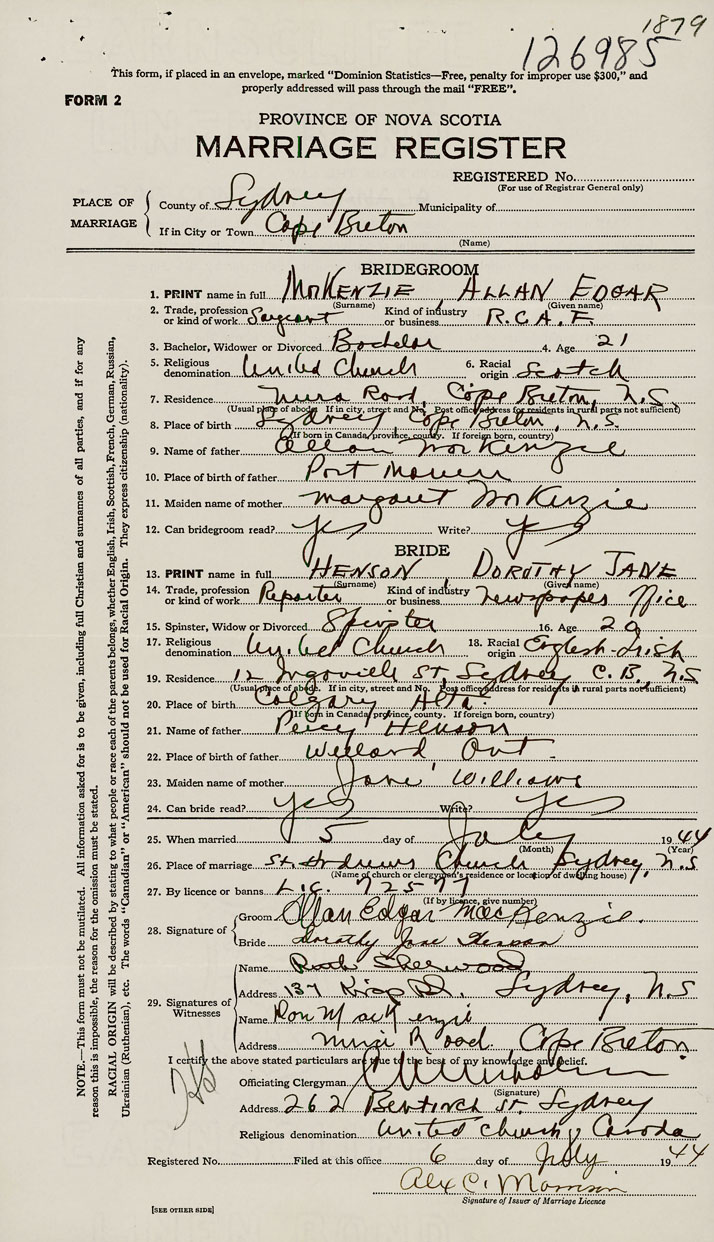 1879
126985
This form, if placed in an envelope, marked "Dominion Statistics—Free, penalty for improper use $300," and
properly addressed will pass through the mail "FREE".
FORM 2
PROVINCE OF NOVA SCOTIA
MARRIAGE REGISTER
REGISTERED No.
(For use of Registrar General only)
PLACE OF MARRIAGE
County of Sydney Municipality of
If in City or Town Cape Breton
(Name)
BRIDEGROOM
1. PRINT name in full McKENZIE, ALLAN EDGAR
(Surname) (Given name)
2. Trade, profession or kind of work Sargeant Kind of industry or business R.C.A.F.
3. Bachelor, Widower or Divorced Bachelor 4. Age 21
5. Religious denomination United Church 6. Racial origin Scotch
7. Residence Mira Road, Cape Breton, N.S.
(Usual place of abode. If in city, street and No. Post office address for residents in rural parts not sufficient)
8. Place of birth Sydney Cape Breton, N.S.
(If born in Canada, province, county. If foreign born, country)
9. Name of father Allan McKenzie
10. Place of birth of father Port Morien
11. Maiden name of mother Margaret McKenzie
12. Can bridegroom read? yes Write? yes
BRIDE
13. PRINT name in full HENSON, DOROTHY JANE
(Surname) (Given name)
14. Trade, profession or kind of work Reporter Kind of industry or business Newspaper Office
15. Spinster, Widow or Divorced Spinster 16. Age 20
17. Religious denomination United Church 18. Racial origin English-Irish
19. Residence 12 St, Sydney C.B., N.S
(Usual place of abode. If in city, street and No. Post office address for residents in rural parts not sufficient)
20. Place of birth Calgary Alta.
(If born in Canada, province, county. If foreign born, country)
21. Name of father Percy Henson
22. Place of birth of father Welland Ont.
23. Maiden name of mother Jane Williams
24. Can bride read? yes Write? yes
25. When married 5 day of July 1944
(Month) (Year)
26. Place of marriage St Andrews Church Sydney, N.S
(Name of church or clergyman's residence or location of dwelling house)
27. By licence or banns Lic. 72577
(If by licence, give number)
28. Signature of
Groom Allan Edgar MacKenzie.
Bride Dorothy Jane Henson
29. Signatures of Witnesses
Name Ruth Sherwood
Address 137 Kings Rd. Sydney, N.S
Name Ron MacKenzie
Address Mira Road Cape Breton
I certify the above stated particulars are true to the best of my knowledge and belief.
Officiating Clergyman
(Signature)
Address 262 Bentinck St. Sydney
Religious denomination United Church, Canada
Registered No. Filed at this office 6 day of July 1944
Alex C. Morrison
Signature of Issuer of Marriage Licence
[SEE OTHER SIDE]
NOTE.—This form must not be mutilated. All information asked for is to be given, including full Christian and surnames of all parties, and if for any
reason this is impossible, the reason for the omission must be stated.
RACIAL ORIGIN will be described by stating to what people or race each of the parents belongs, whether English, Irish, Scottish, French, German, Russian,
Ukrainian (Ruthenian), etc. The words "Canadian" or "American" should not be used for Racial Origin. They express citizenship (nationality).